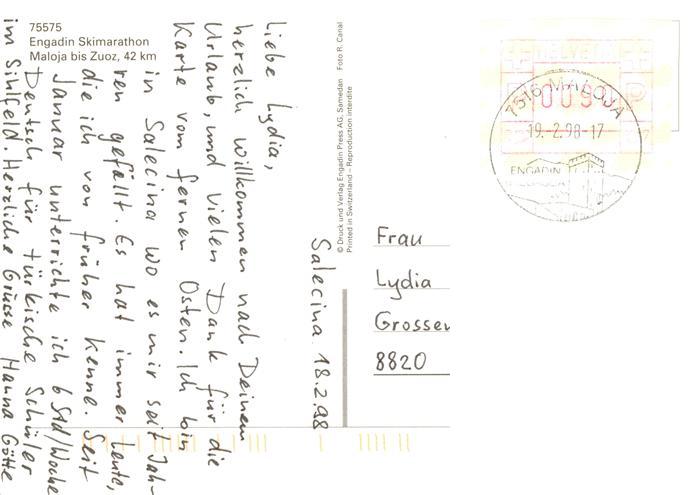 75575
Engadin Skimarathon
Maloja bis Zuoz, 42 km
Salecina 18.2.98
Liebe Lydia,
herzlich willkommen nach Deinem
Urlaub, und vielen Dank für die
Karte vom fernen Osten. Ich bin
in Salecina wo es mir seit Jah-
ren gefällt. Es hat immer Leute,
die ich von früher kenne. Seit
Januar unterrichte ich 6 Std/Woche
Deutsch für türkische Schüler
im Sihlfeld. Herzliche Grüsse Hanna Götte
© Druck und Verlag Engadin Press AG, Samedan Foto R. Canal
Printed in Switzerland – Reproduction interdite
HELVETIA
009
7516 MALOJA
19.-2.98-17
ENGADIN
Frau
Lydia
Grosse
8820